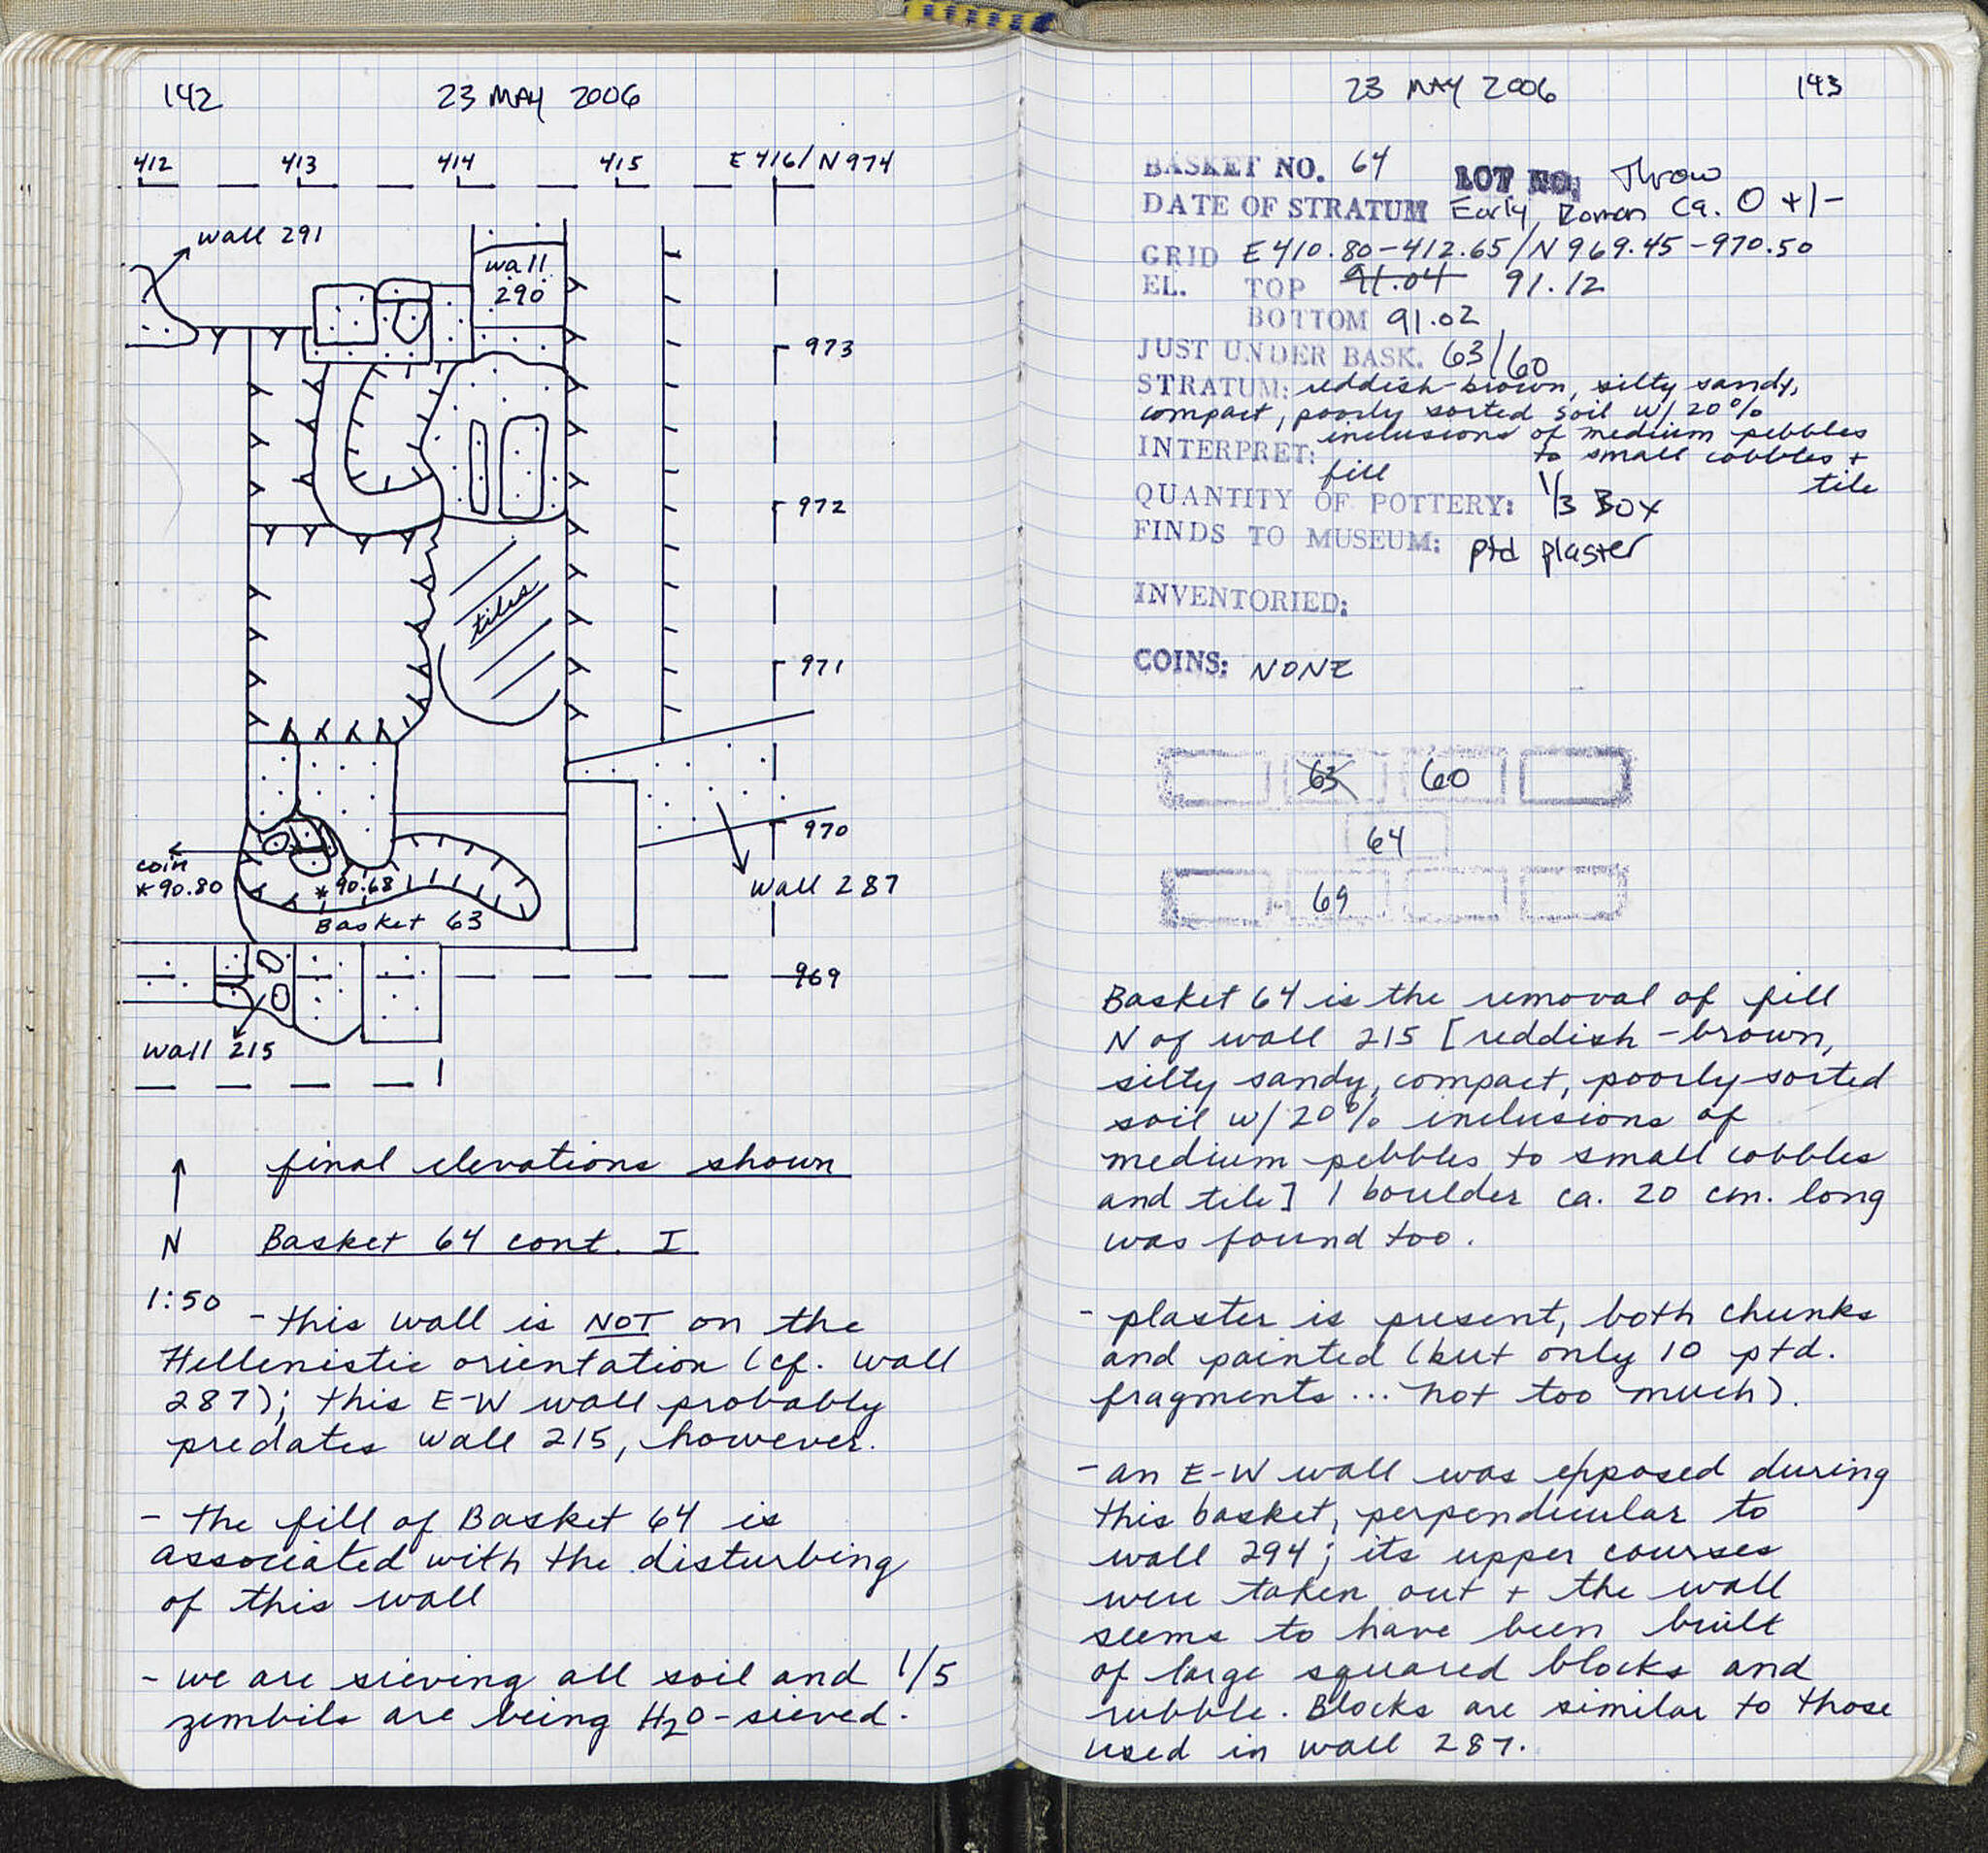 142
23 MAY 2006
412 413 414 415 E 416/N 974
wall 291
wall
290
973
972
tiles
971
970
coin
*90.80
*90.68
Basket 63
wall 287
969
wall 215
final elevations shown
N
Basket 64 cont. I
1:50
- this wall is NOT on the
Hellenistic orientation (cf. wall
287); this E-W wall probably
predates wall 215, however.
- the fill of Basket 64 is
associated with the disturbing
of this wall
- we are sieving all soil and 1/5
zembils are being H2O-sieved.
23 MAY 2006
143
BASKET NO. 64 LOT NO. Throw
DATE OF STRATUM Early Roman ca. 0 +/-
GRID E 410.80-412.65/N 969.45-970.50
EL. TOP 91.04 91.12
BOTTOM 91.02
JUST UNDER BASK. 63/60
STRATUM: reddish-brown, silty sandy,
compact, poorly sorted soil w/ 20%
inclusions of medium pebbles
to small cobbles +
tile
INTERPRET: fill
QUANTITY OF POTTERY: 1/3 Box
FINDS TO MUSEUM: ptd plaster
INVENTORIED:
COINS: NONE
63 60
64
69
Basket 64 is the removal of fill
N of wall 215 [reddish-brown,
silty sandy, compact, poorly sorted
soil w/ 20% inclusions of
medium pebbles to small cobbles
and tile] 1 boulder ca. 20 cm. long
was found too.
- plaster is present, both chunks
and painted (but only 10 ptd.
fragments ... not too much).
- an E-W wall was epposed during
this basket, perpendicular to
wall 294; its upper courses
were taken out + the wall
seems to have been built
of large squared blocks and
rubble. Blocks are similar to those
used in wall 287.